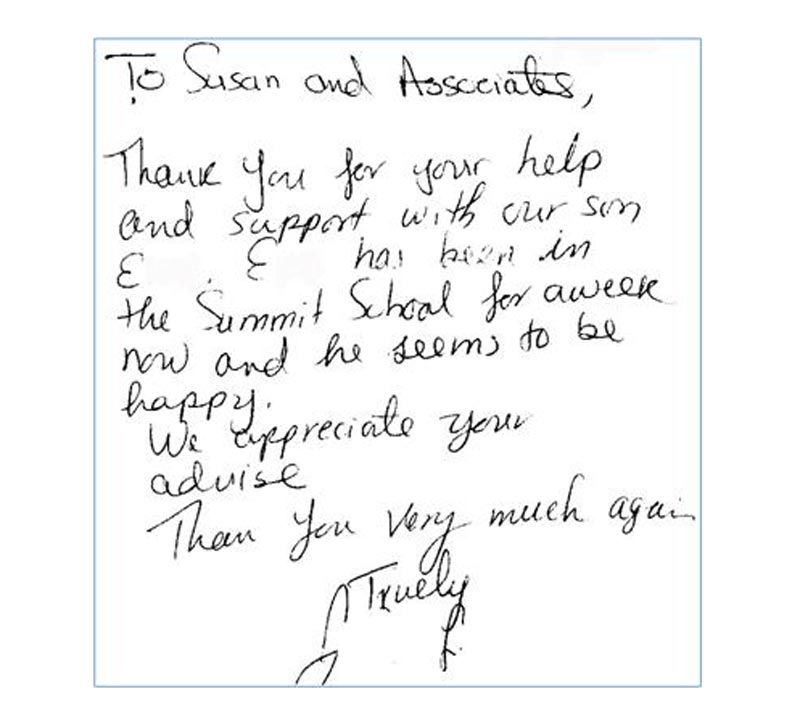 To Susan and Associates,
Thank you for your help
and support with our son
E . E has been in
the Summit School for a week
now and he seems to be
happy.
We appreciate your
advise
Than you very much again
Truely